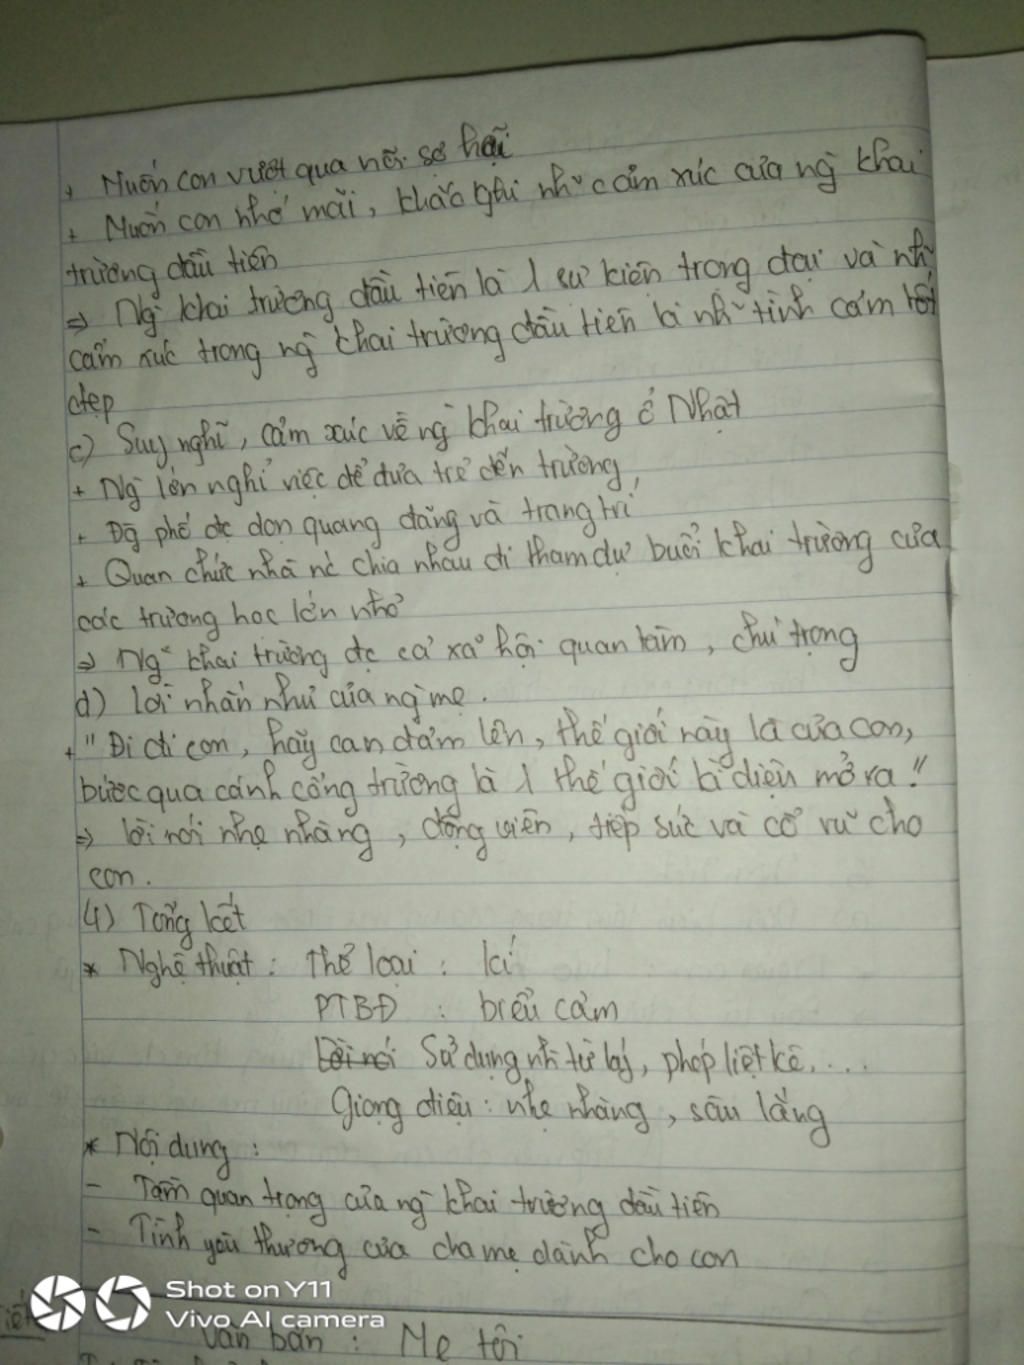 + Muốn con vượt qua nỗi sợ hãi
+ Muốn con nhớ mãi, khắc ghi nh~ cảm xúc của ng` khai
trường đầu tiên
=> Ng` khai trường đầu tiên là 1 sự kiện trọng đại và nh~
cảm xúc trong ng` khai trường đầu tiên là nh~ tình cảm tốt
đẹp
c) Suy nghĩ, cảm xúc về ng` khai trường ở Nhật
+ Ng` lớn nghỉ việc để đưa trẻ đến trường,
+ Đg phố đc dọn quang đãng và trang trí
+ Quan chức nhà nc chia nhau đi tham dự buổi khai trường của
các trường học lớn nhỏ
=> Ng` khai trường đc cả xã hội quan tâm, chú trọng
d) Lời nhắn nhủ của ng` mẹ.
+ "Đi đi con, hãy can đảm lên, thế giới này là của con,
bước qua cánh cổng trường là 1 thế giới kì diệu mở ra"
=> lời nói nhẹ nhàng, động viên, tiếp sức và cổ vũ cho
con.
4) Tổng kết
* Nghệ thuật: Thể loại: kí
PTBĐ : biểu cảm
Lời nói Sử dụng nh~ từ láy, phép liệt kê, ...
Giọng điệu: nhẹ nhàng, sâu lắng
* Nội dung:
- Tầm quan trọng của ng` khai trường đầu tiên
- Tình yêu thương của cha mẹ dành cho con
Shot on Y11
Vivo AI camera
Văn bản: Mẹ tôi